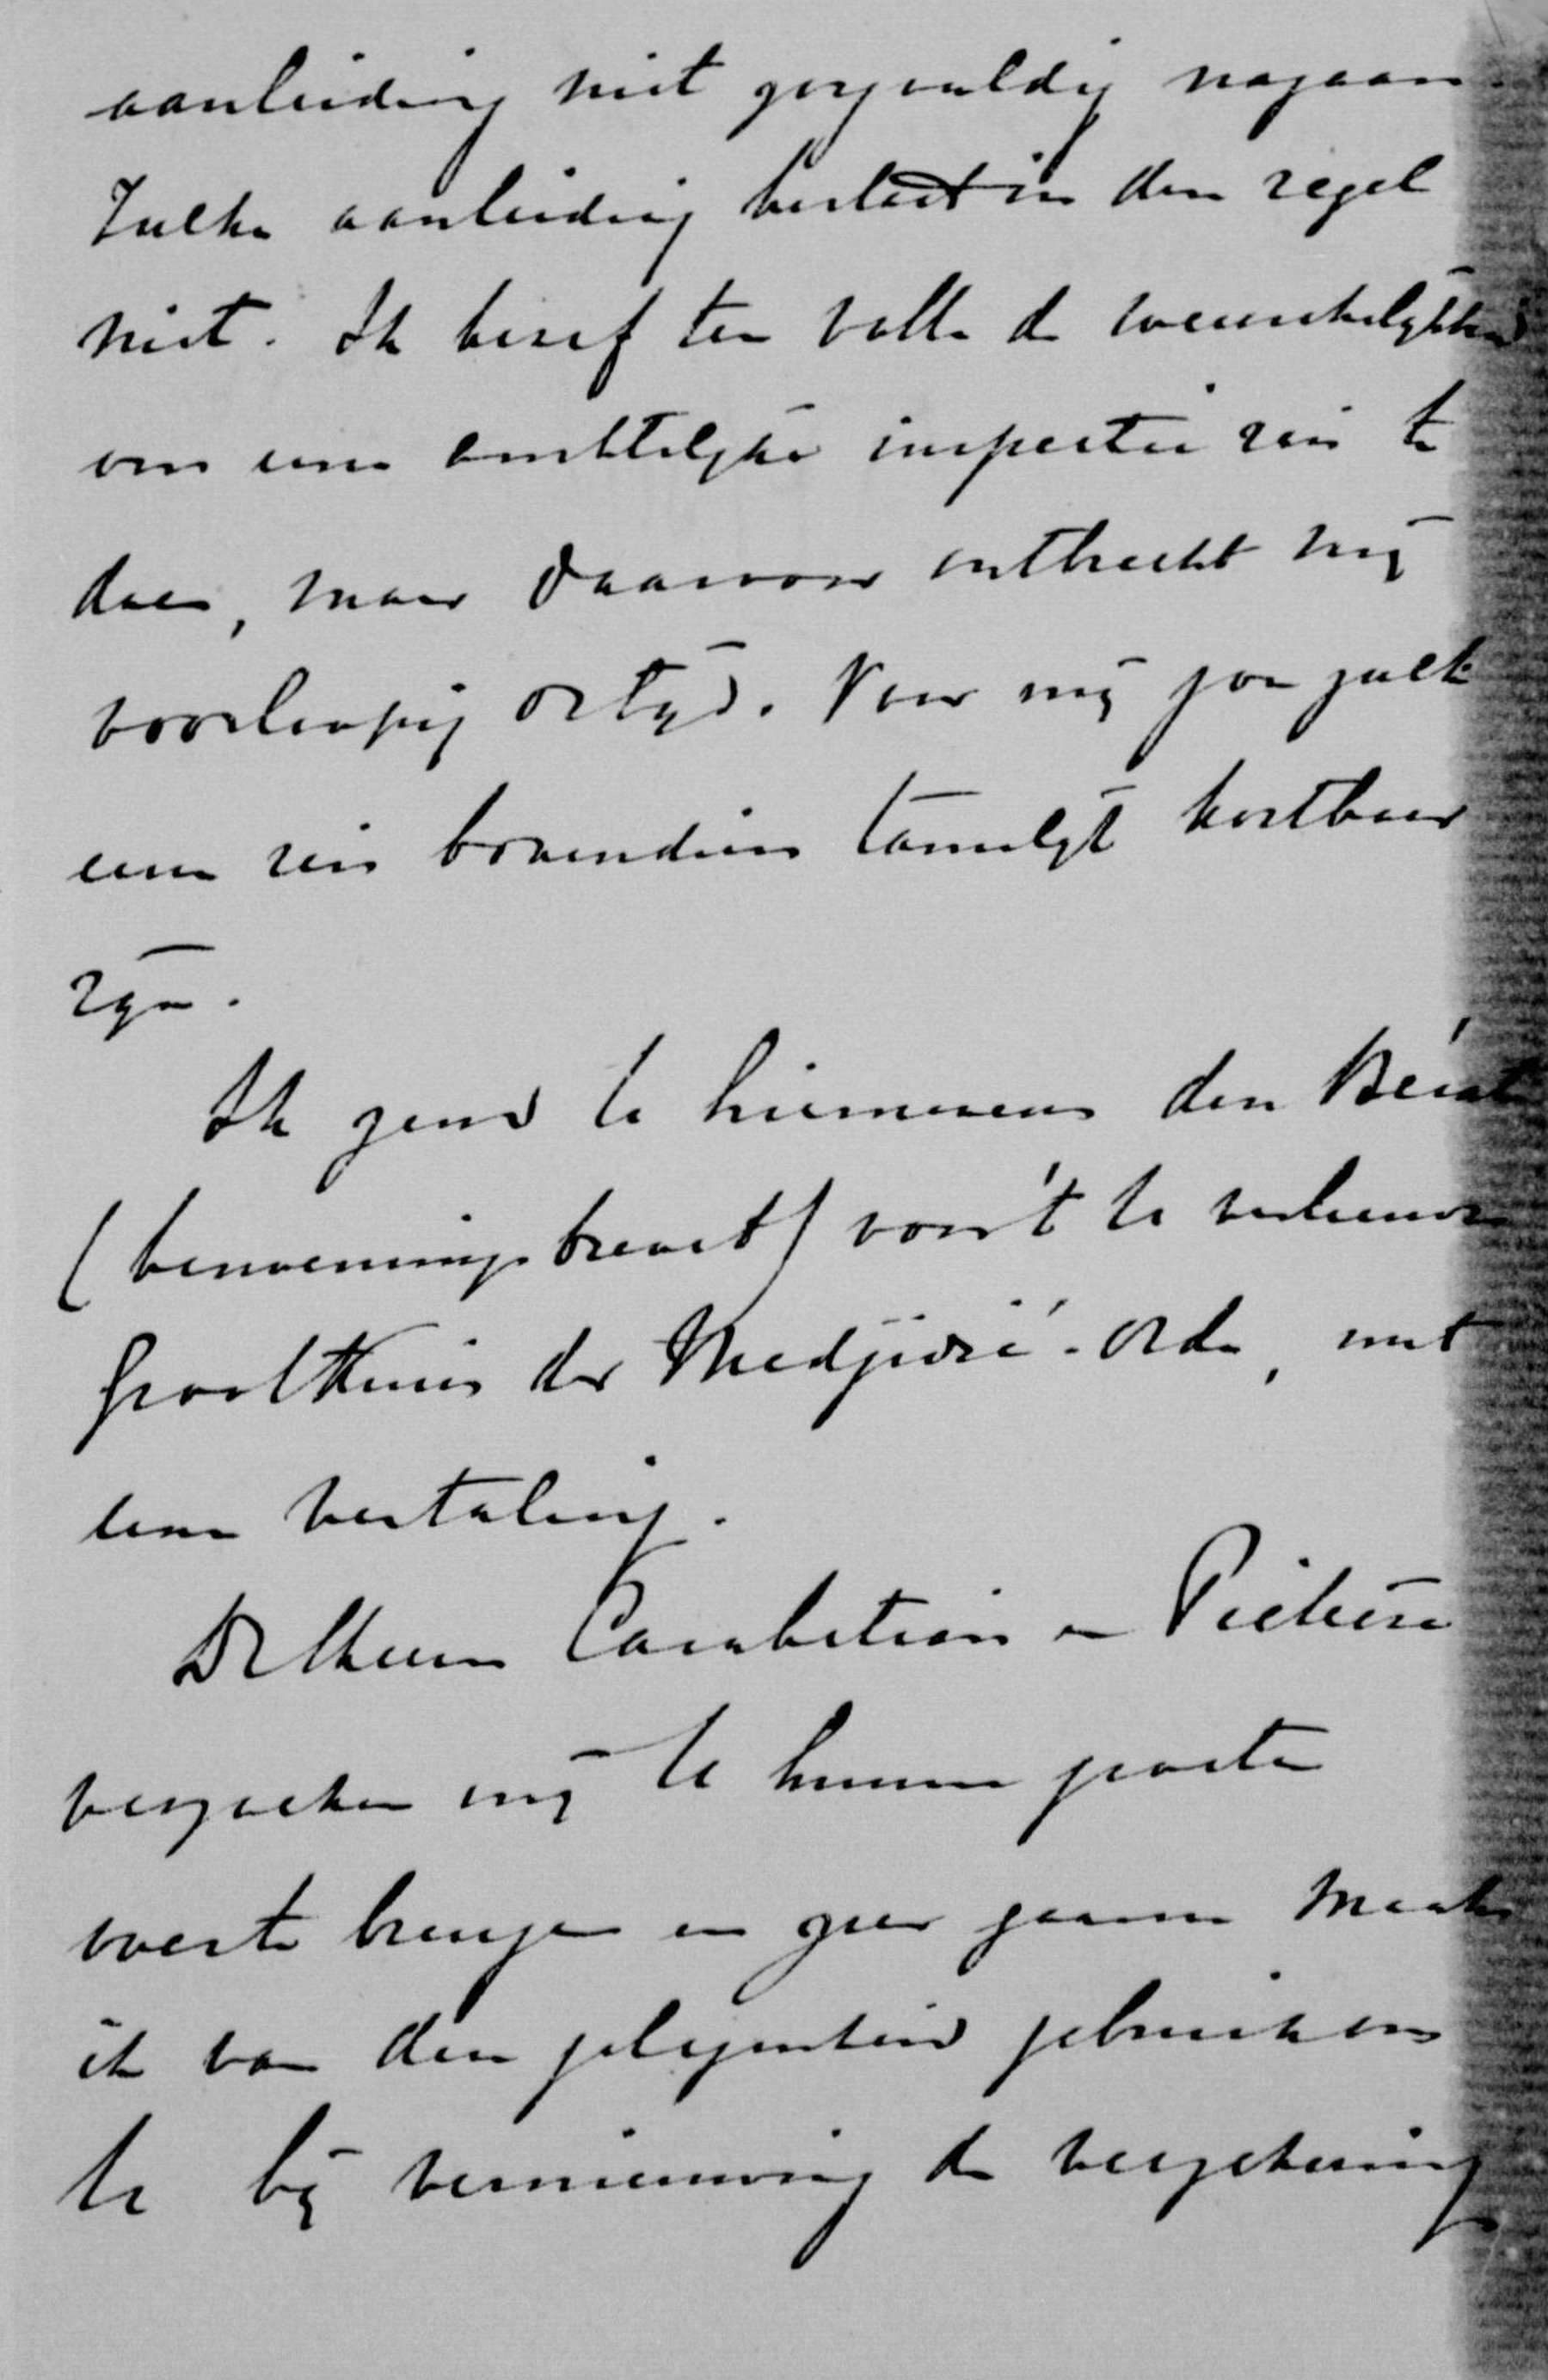 aanleiding niet zorgvuldig nagaan.
Zulke aanleiding bestaat in den regel
niet. Ik besef ten volle de wenschelijkheid
om eene ambtelijke inspectie reis te
doen, maar daarvoor ontbreekt mij
voorloopig de tijd. Voor mij zou zulk
eene reis bovendien tamelijk kostbaar
zijn.
Ik zend U hiernevens den Bérat
(benoemingsbrevet) voor 't U verleende
Grootkruis der Medjidié-Orde, met
eene vertaling.
De Heeren Carabetian en
verzoeken mij U hunne groeten
over te brengen en zeer gaarne maak
ik van den gelegenheid gebruik om
U bij vernieuwing de verzekering